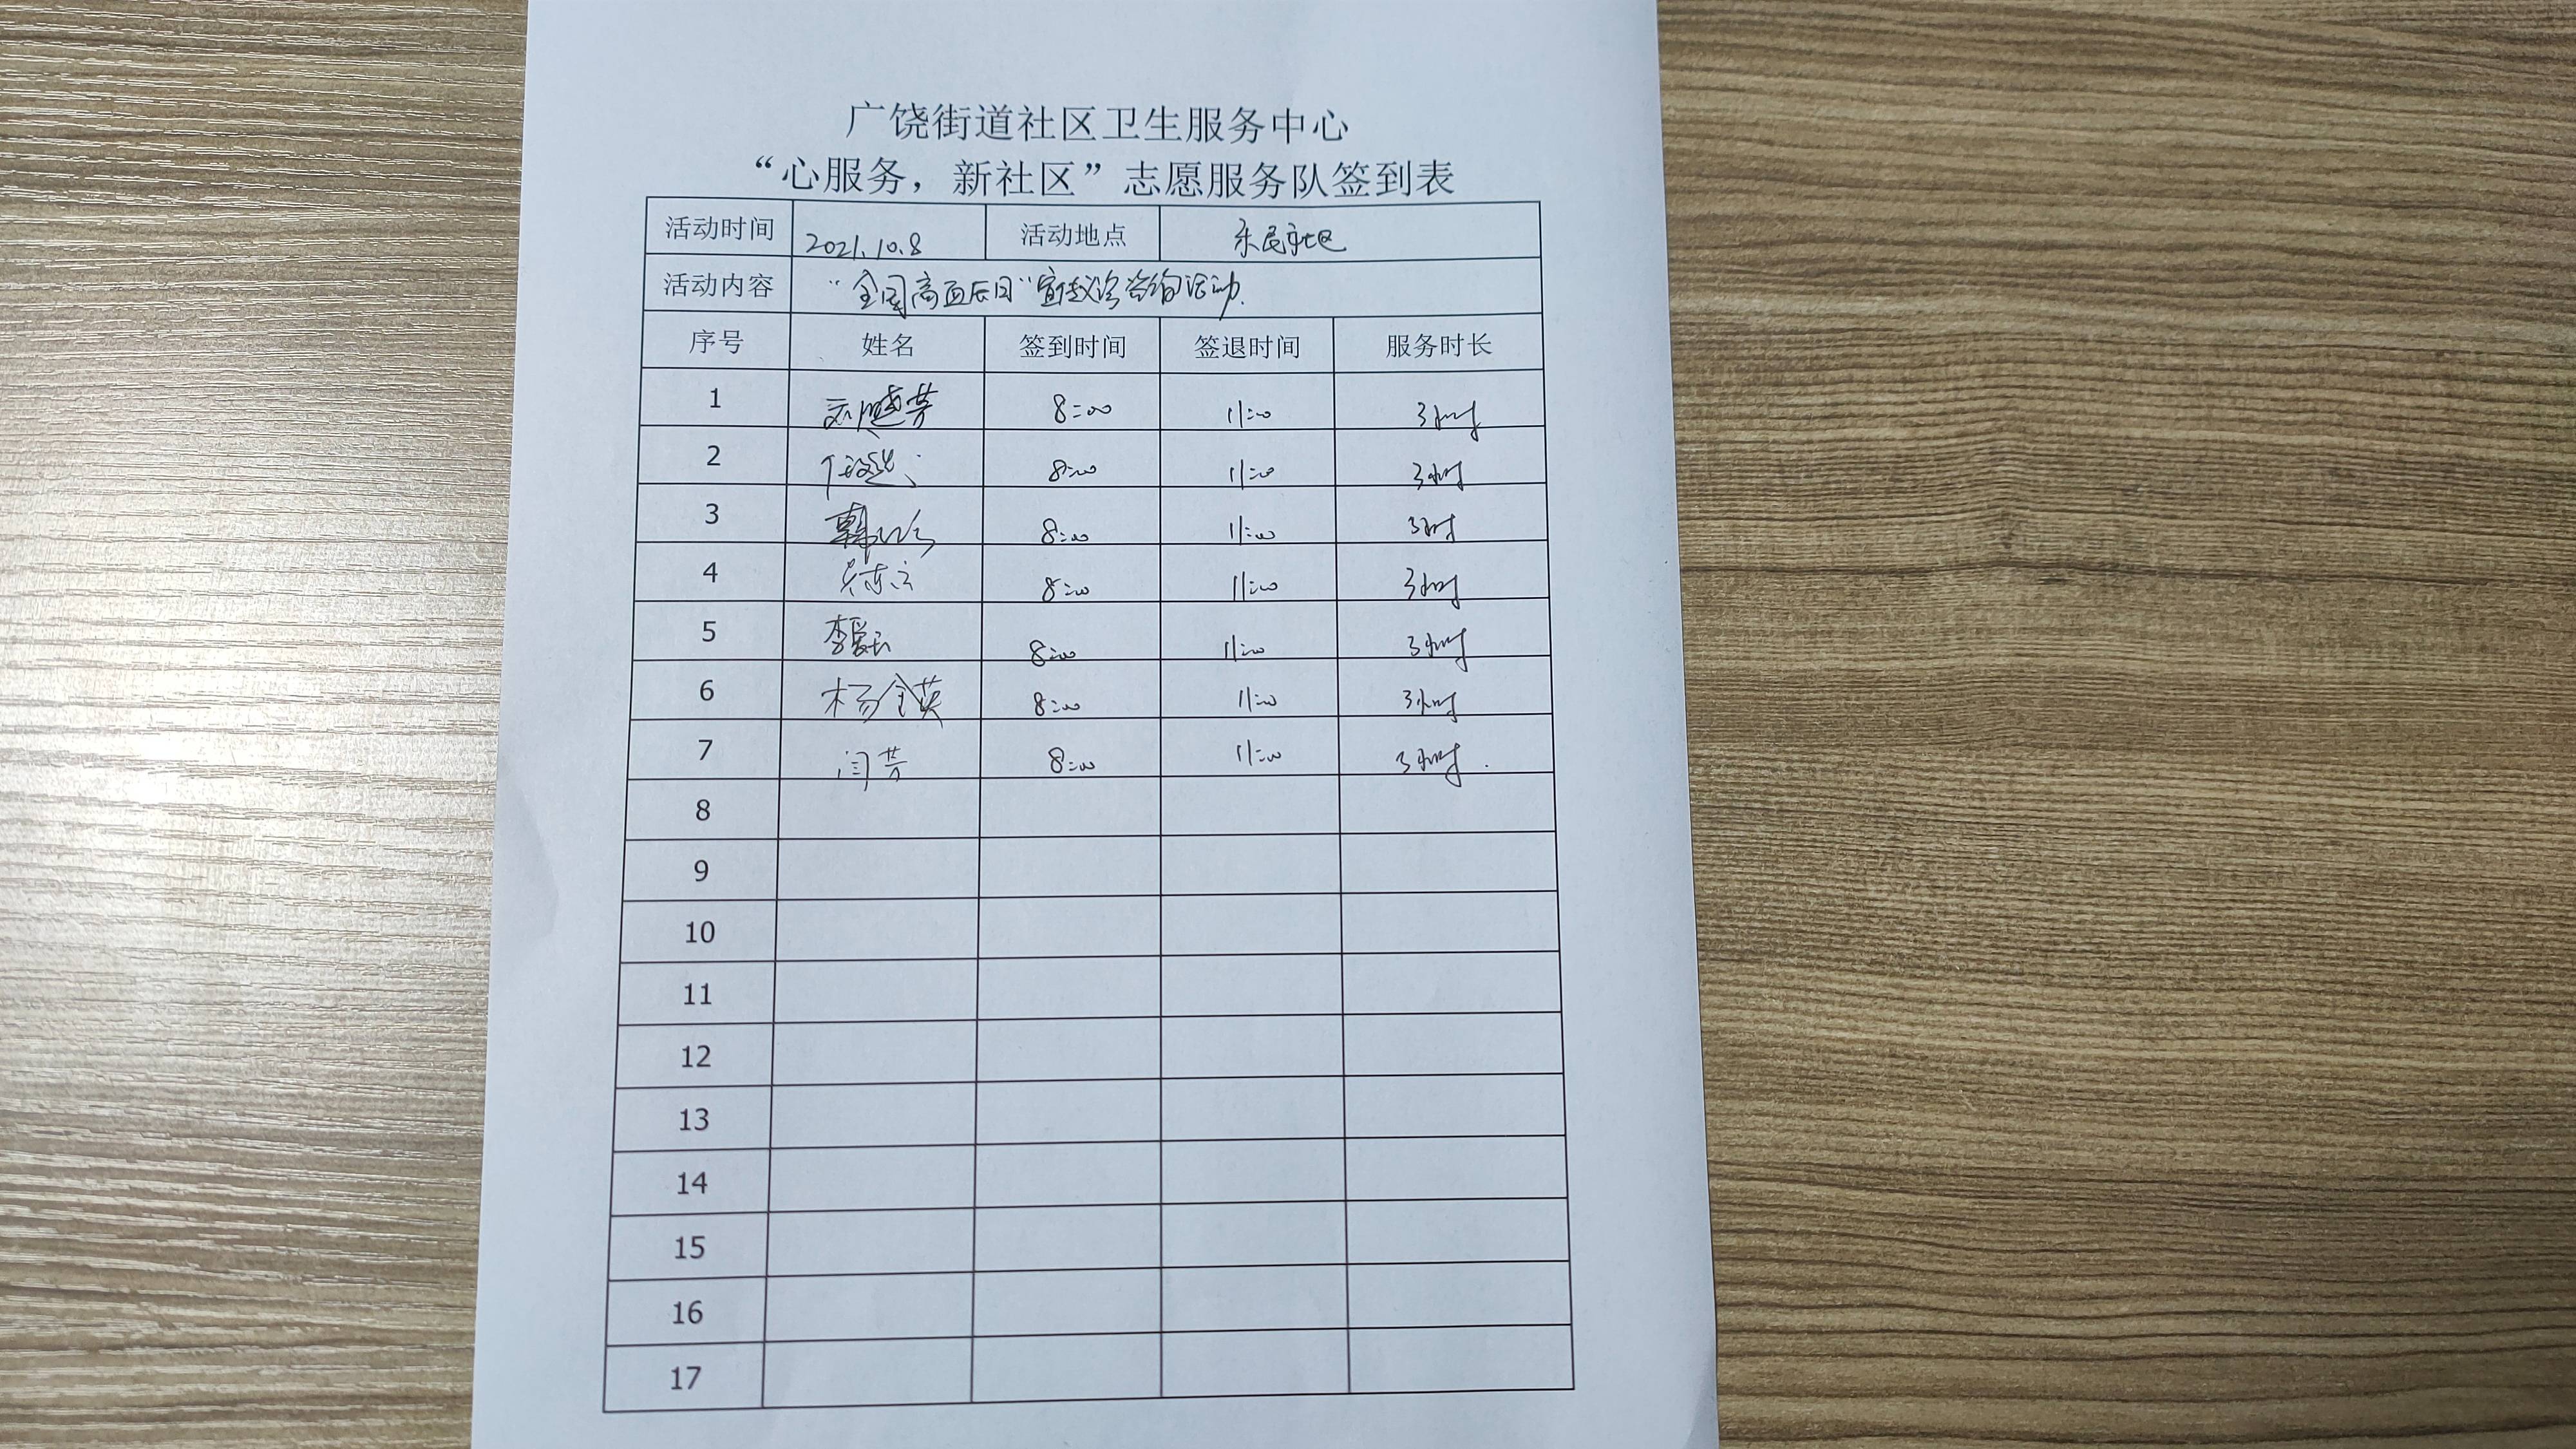 广饶街道社区卫生服务中心
“心服务，新社区”志愿服务队签到表
活动时间 2021.10.8 活动地点 乐民社区
活动内容 “全国高血压日”宣传义诊咨询活动.
序号 姓名 签到时间 签退时间 服务时长
1 8:00 11:00 3小时
2 8:00 11:00 3小时
3 8:00 11:00 3小时
4 8:00 11:00 3小时
5 8:00 11:00 3小时
6 杨金英 8:00 11:00 3小时
7 闫芳 8:00 11:00 3小时.
8
9
10
11
12
13
14
15
16
17